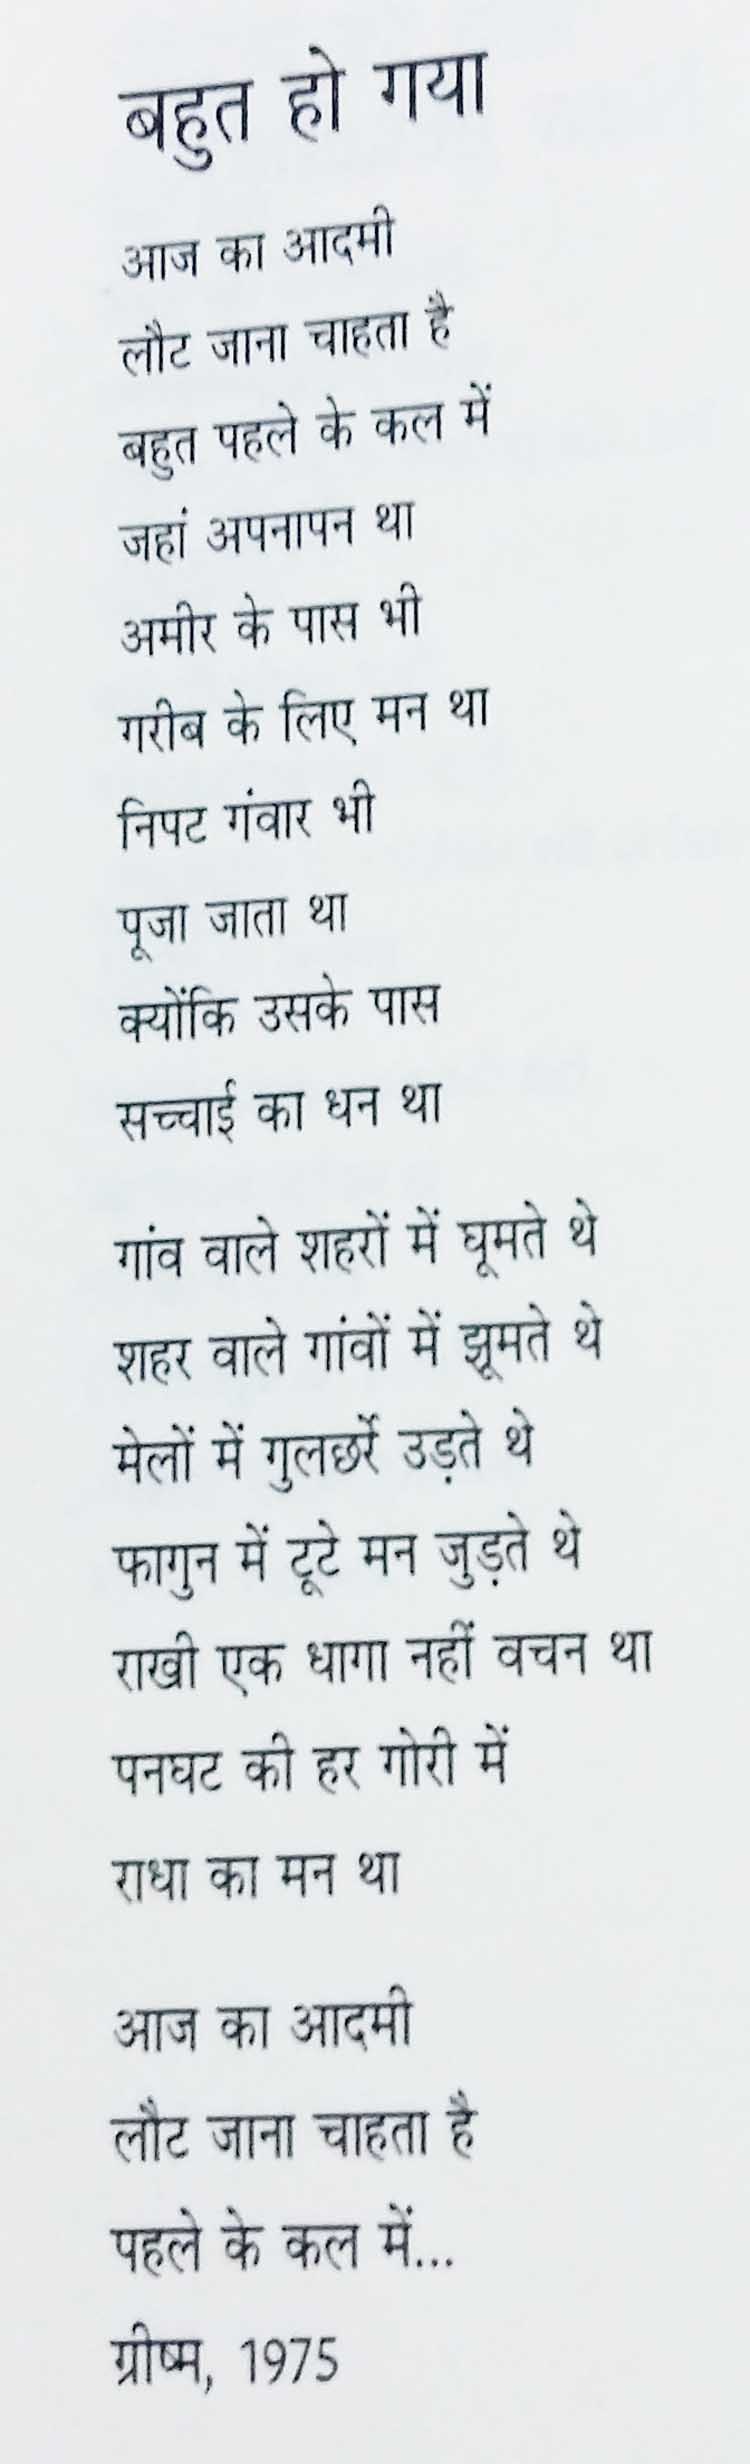 बहुत हो गया
आज का आदमी
लौट जाना चाहता है
बहुत पहले के कल में
जहां अपनापन था
अमीर के पास भी
गरीब के लिए मन था
निपट गंवार भी
पूजा जाता था
क्योंकि उसके पास
सच्चाई का धन था
गांव वाले शहरों में घूमते थे
शहर वाले गांवों में झूमते थे
मेलों में गुलछर्रे उड़ते थे
फागुन में टूटे मन जुड़ते थे
राखी एक धागा नहीं वचन था
पनघट की हर गोरी में
राधा का मन था
आज का आदमी
लौट जाना चाहता है
पहले के कल में...
ग्रीष्म, 1975